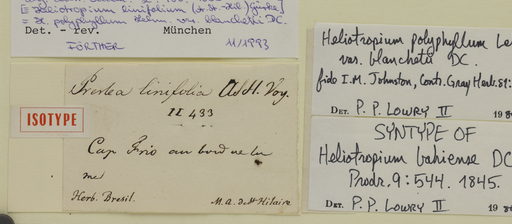 ≡ Heliotropium linifolium (A. St.-Hil.) Gürke]
= H. polyphyllum Lehm. var. blanchetii DC.
Det. - rev. München
FÖRTHER 11/1993
ISOTYPE
Preslea linifolia Ad. H. Voy.
II 433
Cap Frio au bord de la
mer
Herb. Bresil. M. A. de St Hilaire
Heliotropium polyphyllum Le
var. blanchetii DC.
fide I.M. Johnston, Contr. Gray Herb. 81:
DET. P. P. LOWRY II 19
SYNTYPE OF
Heliotropium bahiense DC
Prodr. 9: 544. 1845.
DET. P. P. LOWRY II 19